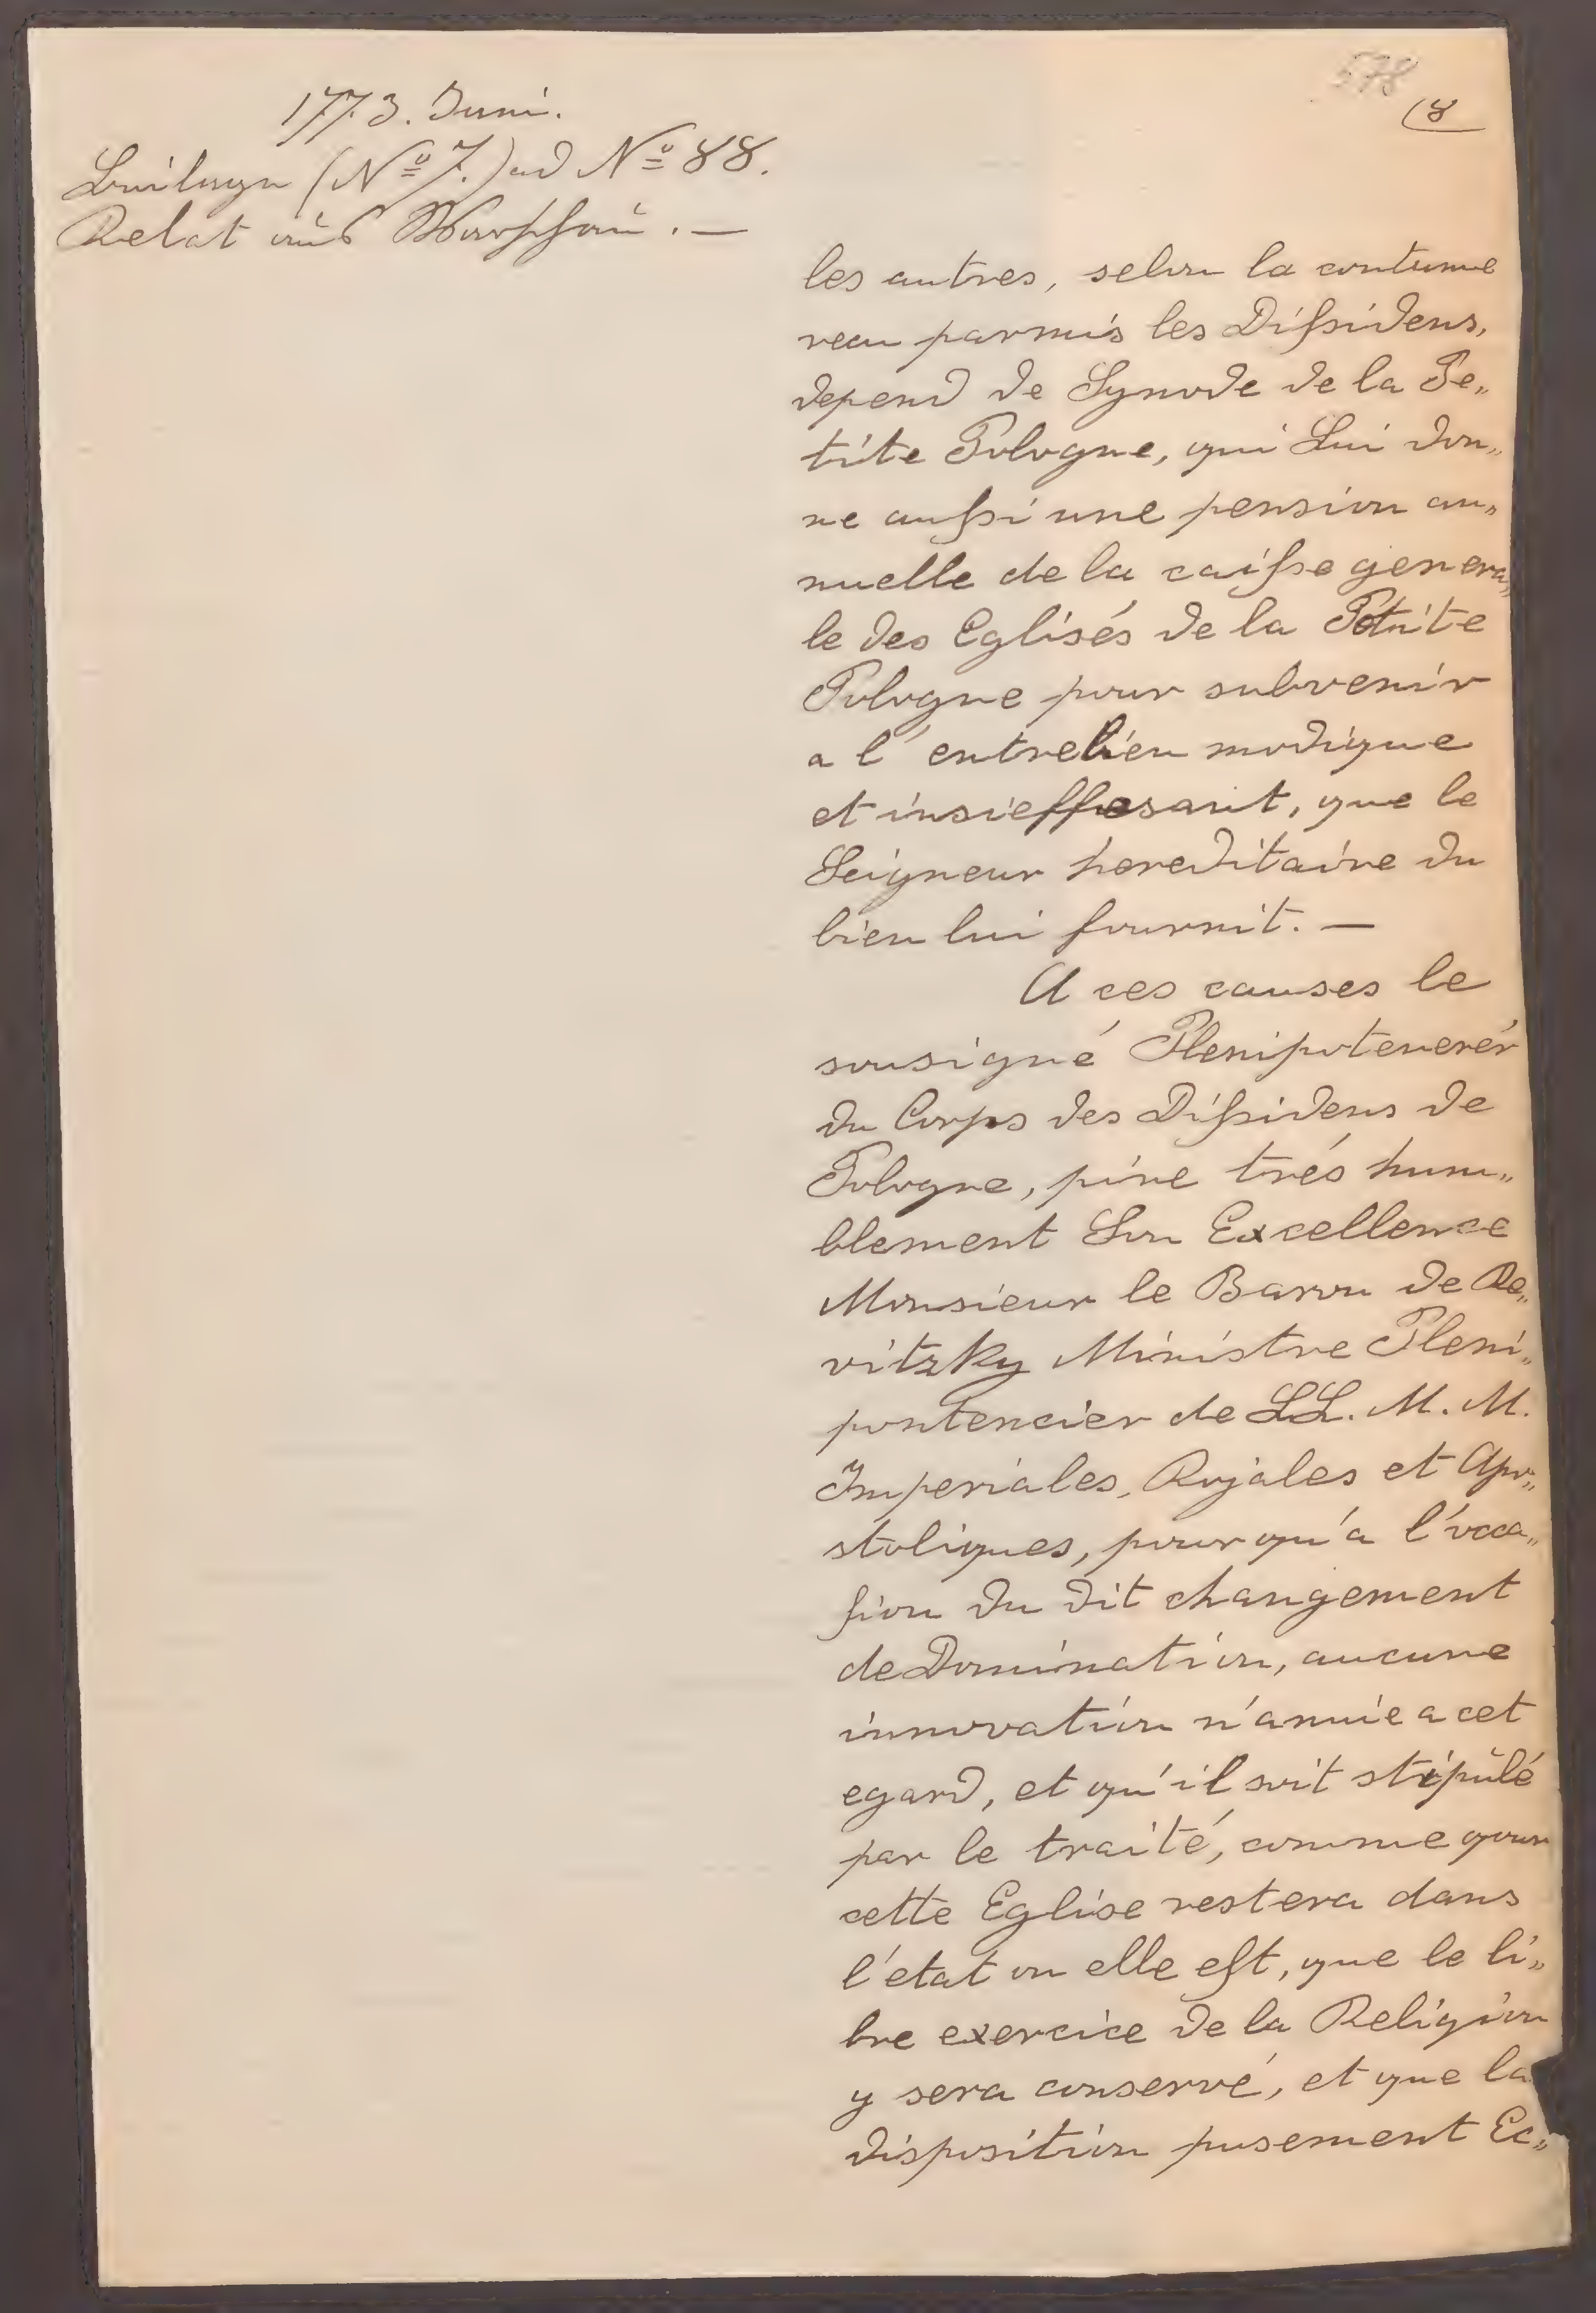 578
(8
1773. Juni.
Beilage (No 7.) ad No 88.
Relat aus Warschau. —
les autres, selon la coutume
recu parmis les Dissidens,
depend de Synode de la Pe„
tite Pologne, qui Lui don„
ne aussi une pension an„
nuelle de la caisse genera„
le des Eglisés de la Petite
Pologne pour subvenir
a l'entretien modique
et insieffesant, que le
Seigneur hereditaire du
bien lui fournit. —
A ces causes le
sousigné Plenipotenerér
du Corps des Dissidens de
Pologne, pire trés hum„
blement Son Excellence
Monsieur le Baron de Re„
vitzky Ministre Pleni„
pontencier de LL. M. M.
Imperiales, Rojales et Apo„
stoliques, pour qu'a l'occa„
sion du dit changement
de Domination, aucune
innovation n'annie a cet
egard, et qu'il soit stipulé
par le traité, comme que
cette Eglise restera dans
l'etat ou elle est, que le li„
bre exercice de la Religion
y sera conservé, et que la
disposition pusement Ec„